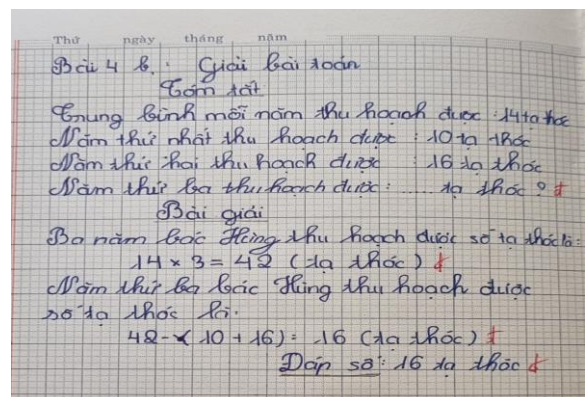 Thứ ngày tháng năm
Bài 4 b. Giải bài toán
Tóm tắt
Trung bình mỗi năm thu hoạch được : 14 tạ thóc
Năm thứ nhất thu hoạch được : 10 tạ thóc
Năm thứ hai thu hoạch được : 16 tạ thóc
Năm thứ ba thu hoạch được: ..... tạ thóc ?
Bài giải
Ba năm bác Hùng thu hoạch được số tạ thóc là:
14 × 3 = 42 (tạ thóc)
Năm thứ ba bác Hùng thu hoạch được
số tạ thóc là:
42 - ( 10 + 16) = 16 (tạ thóc)
Đáp số: 16 tạ thóc